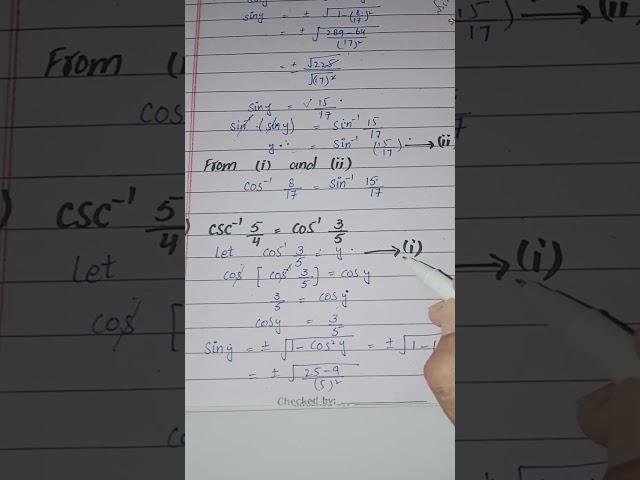 sin y = ± √1-(8/17)²
= ± √289-64/(17)²
= ± √225/√(17)²
sin y = √ 15/17 .
sin⁻¹ (sin y) = sin⁻¹ 15/17
y = sin⁻¹ (15/17) . → (ii
From (i) and (ii)
cos⁻¹ 8/17 = sin⁻¹ 15/17
csc⁻¹ 5/4 = cos⁻¹ 3/5
Let cos⁻¹ 3/5 = y . → (i)
cos [cos⁻¹ 3/5] = cos y
3/5 = cos y
cos y = 3/5
Sin y = ± √1 - cos² y = ± √1-
= ± √25-9/(5)²
Checked by: